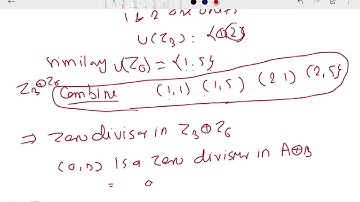 1 & 2 are units
U(Z3): {1,2}
similay U(Z6) = {1,5}
Z3⊕Z6 Combine (1,1) (1,5) (2 1) (2,5)
⇒ Zero diviser in Z3⊕Z6
(a,b) is a zero diviser in A⊕B
=